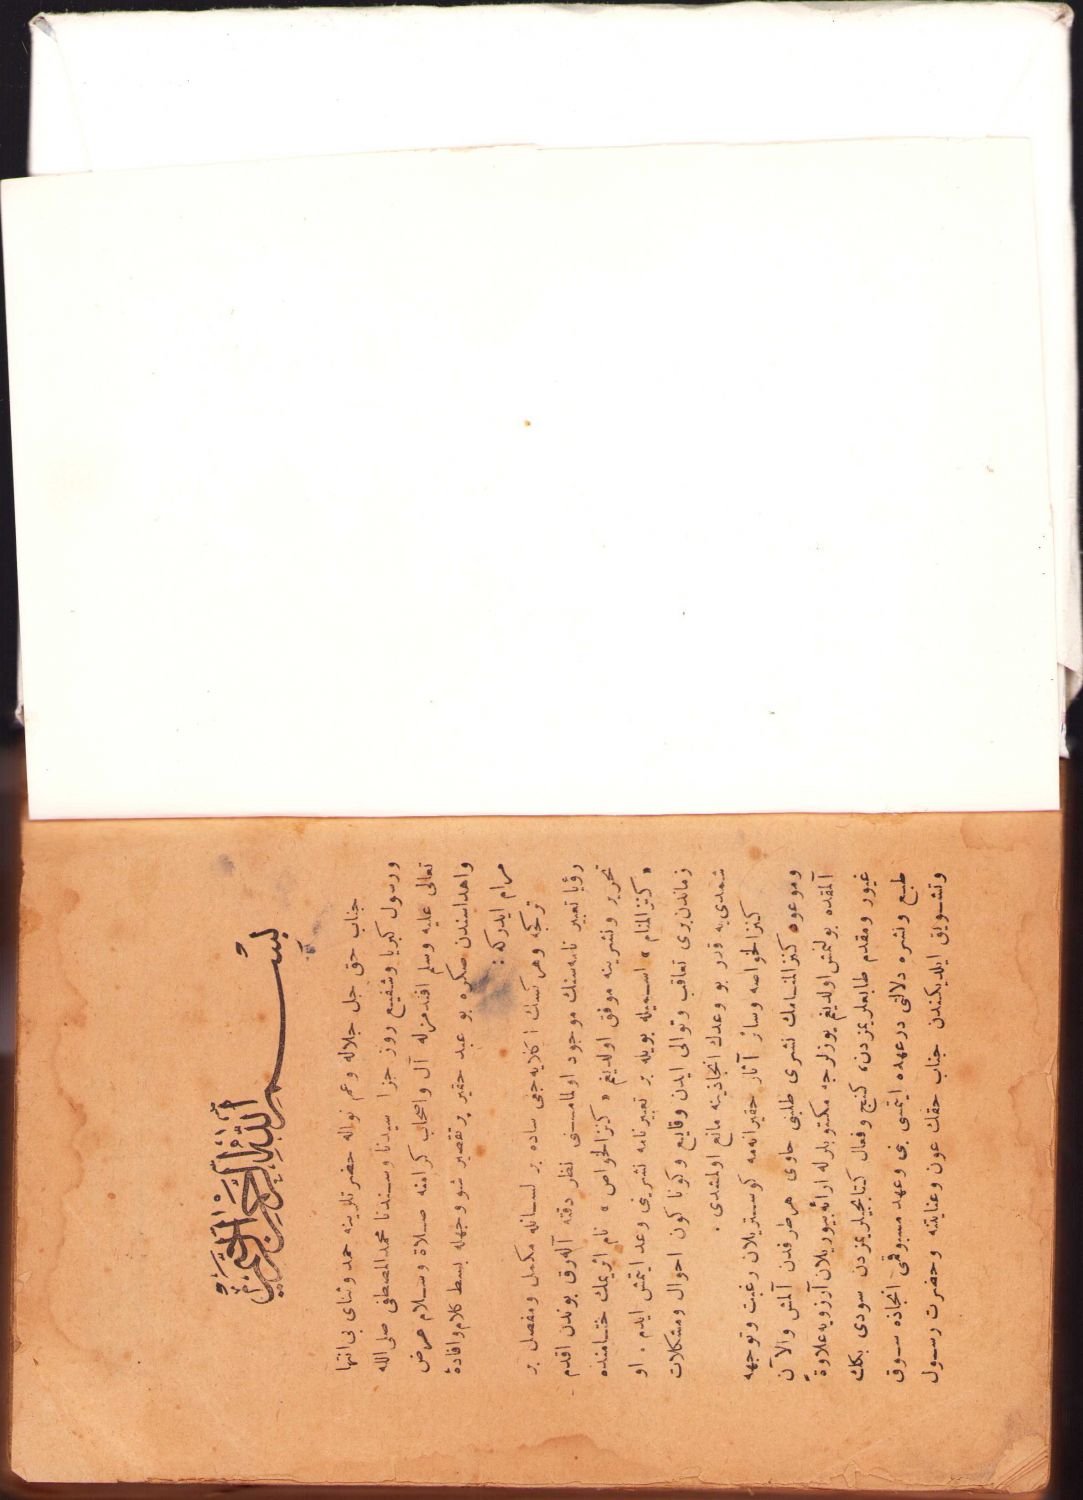 بسم الله الرحمن الرحيم
جناب حق جل جلاله وعم نواله حضرتلرينه حمد وثنای بی‌انتها
ورسول كبريا وشفيع روز جزا سيدنا وسندنا محمد المصطفى صلى الله
تعالى عليه وسلم افندمزله آل واصحاب كرامنه صلاة وسلام عرض
واهداسندن صكره بو عبد حقير پر تقصير شو وجهله بسط كلام وافادهٔ
مرام ايدركه :
تركجه وهركسك اكلايه‌جغی ساده بر لسانله مكمل ومفصل بر
رؤيا تعبير نامه‌سنك موجود اولمامسنی نظر دقته آله‌رق بوندن اقدم
تحرير ونشرينه موفق اولديغم « كنزالخواص » نام اثريمك ختامنده
« كنزالمنام » اسميله بويله بر تعبيرنامه نشرينی وعد ايتمش ايدم . او
زماندن‌بری تعاقب وتوالی ايدن وقايع وكوناكون احوال ومشكلات
شمدی‌يه قدر بو وعدك انجازينه مانع اولمشدی .
كنزالخواصه وسائر آثار حقيرانه‌مه كوستريلان رغبت وتوجهه
وموعود كنزالمنامك نشری طلبنی حاوی هر طرفدن آلمش والآن
آلمقده بولنمش اولديغم يوزلرجه مكتوبلرله ارائه بيوريلان آرزويه علاوةً
غيور ومقدم طابعلريمزدن، كنج وفعال كتابجيلريمزدن سودی بكك
طبع ونشره دلالتی درعهده ايتمسی بنی وعهد مسبوقمی انجازه سوق
وتشويق ايلديكندن جناب حقك عون وعنايتنه وحضرت رسول